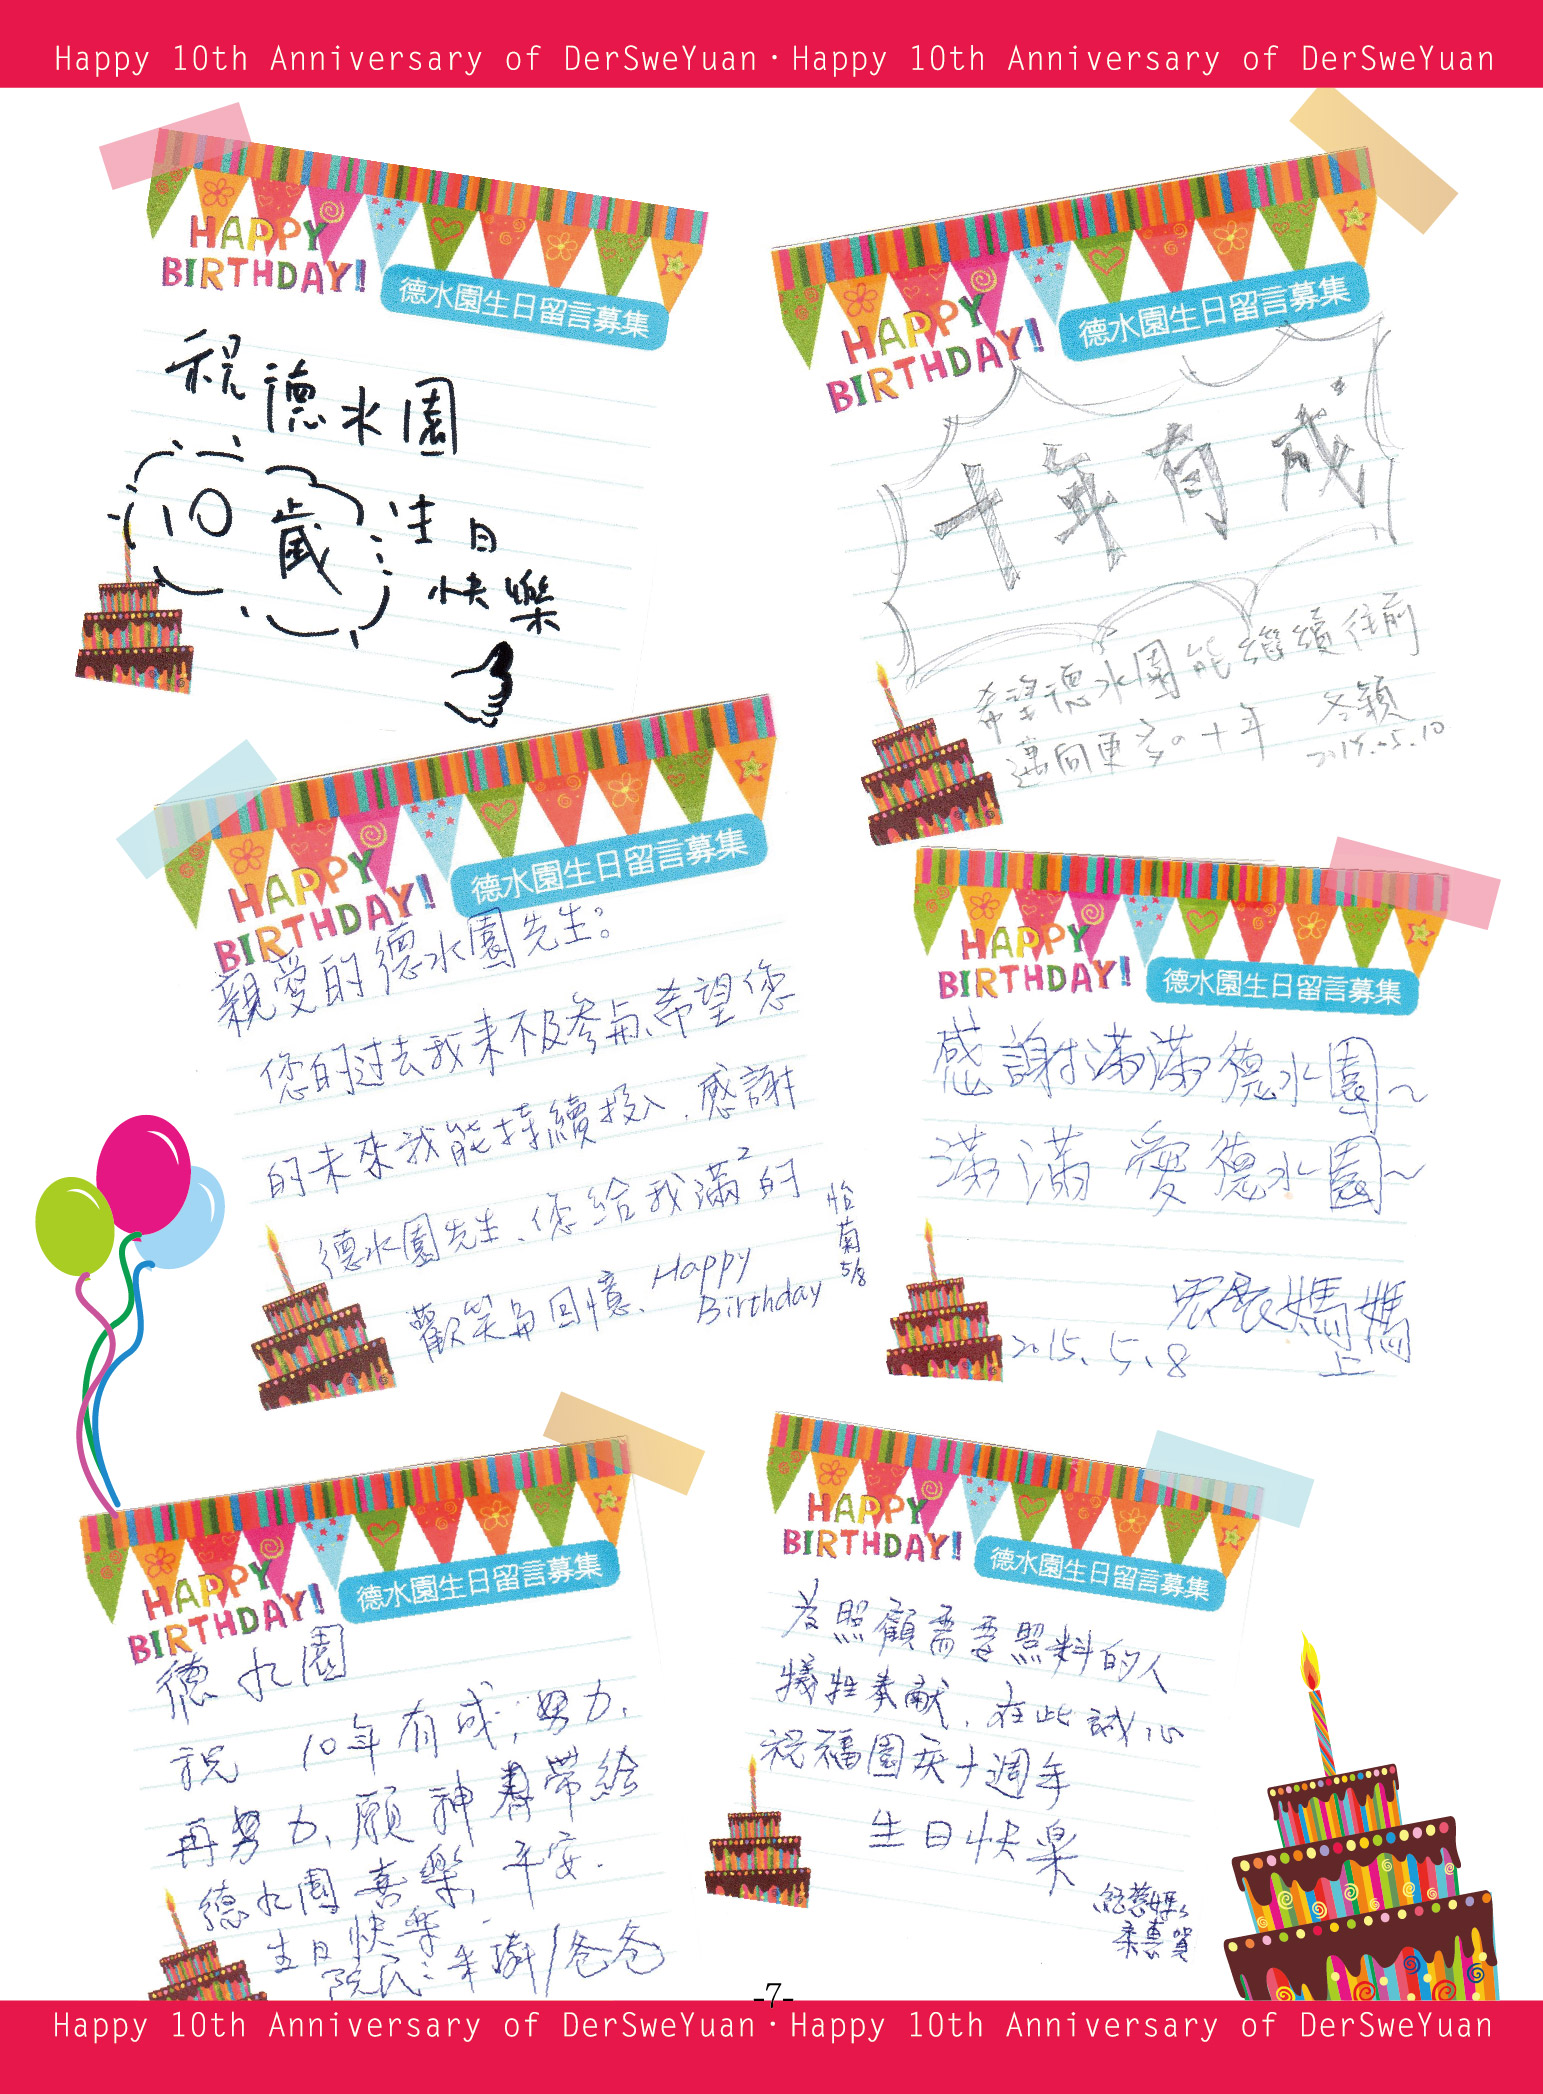 Happy 10th Anniversary of DerSweYuan · Happy 10th Anniversary of DerSweYuan
HAPPY
BIRTHDAY!
德水園生日留言募集
祝德水園
10歲 生日
快樂
HAPPY
BIRTHDAY!
德水園生日留言募集
十年有成
希望德水園能繼續往前
邁向更多的十年
冬穎
2015.05.10
HAPPY
BIRTHDAY!
德水園生日留言募集
親愛的德水園先生:
您的过去我来不及參与、希望您
的未來我能持續投入、感謝
德水園先生、您給我滿²的
歡笑与回憶、Happy
Birthday
怡菊
5/8
HAPPY
BIRTHDAY!
德水園生日留言募集
感謝滿滿德水園~
滿滿愛德水園~
宸媽媽
上
2015、5、8
HAPPY
BIRTHDAY!
德水園生日留言募集
德水園
祝 10年有成,努力,
再努力,願神帶給
德水園喜樂,平安.
生日快樂.
院民:朱/爸爸
HAPPY
BIRTHDAY!
德水園生日留言募集
為照顧需要照料的人
犧牲奉献,在此誠心
祝福園庆十週年
生日快樂
媽媽
惠賀
-7-
Happy 10th Anniversary of DerSweYuan · Happy 10th Anniversary of DerSweYuan